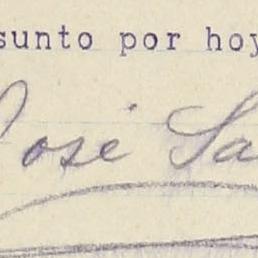 sunto por hoy
José Sa